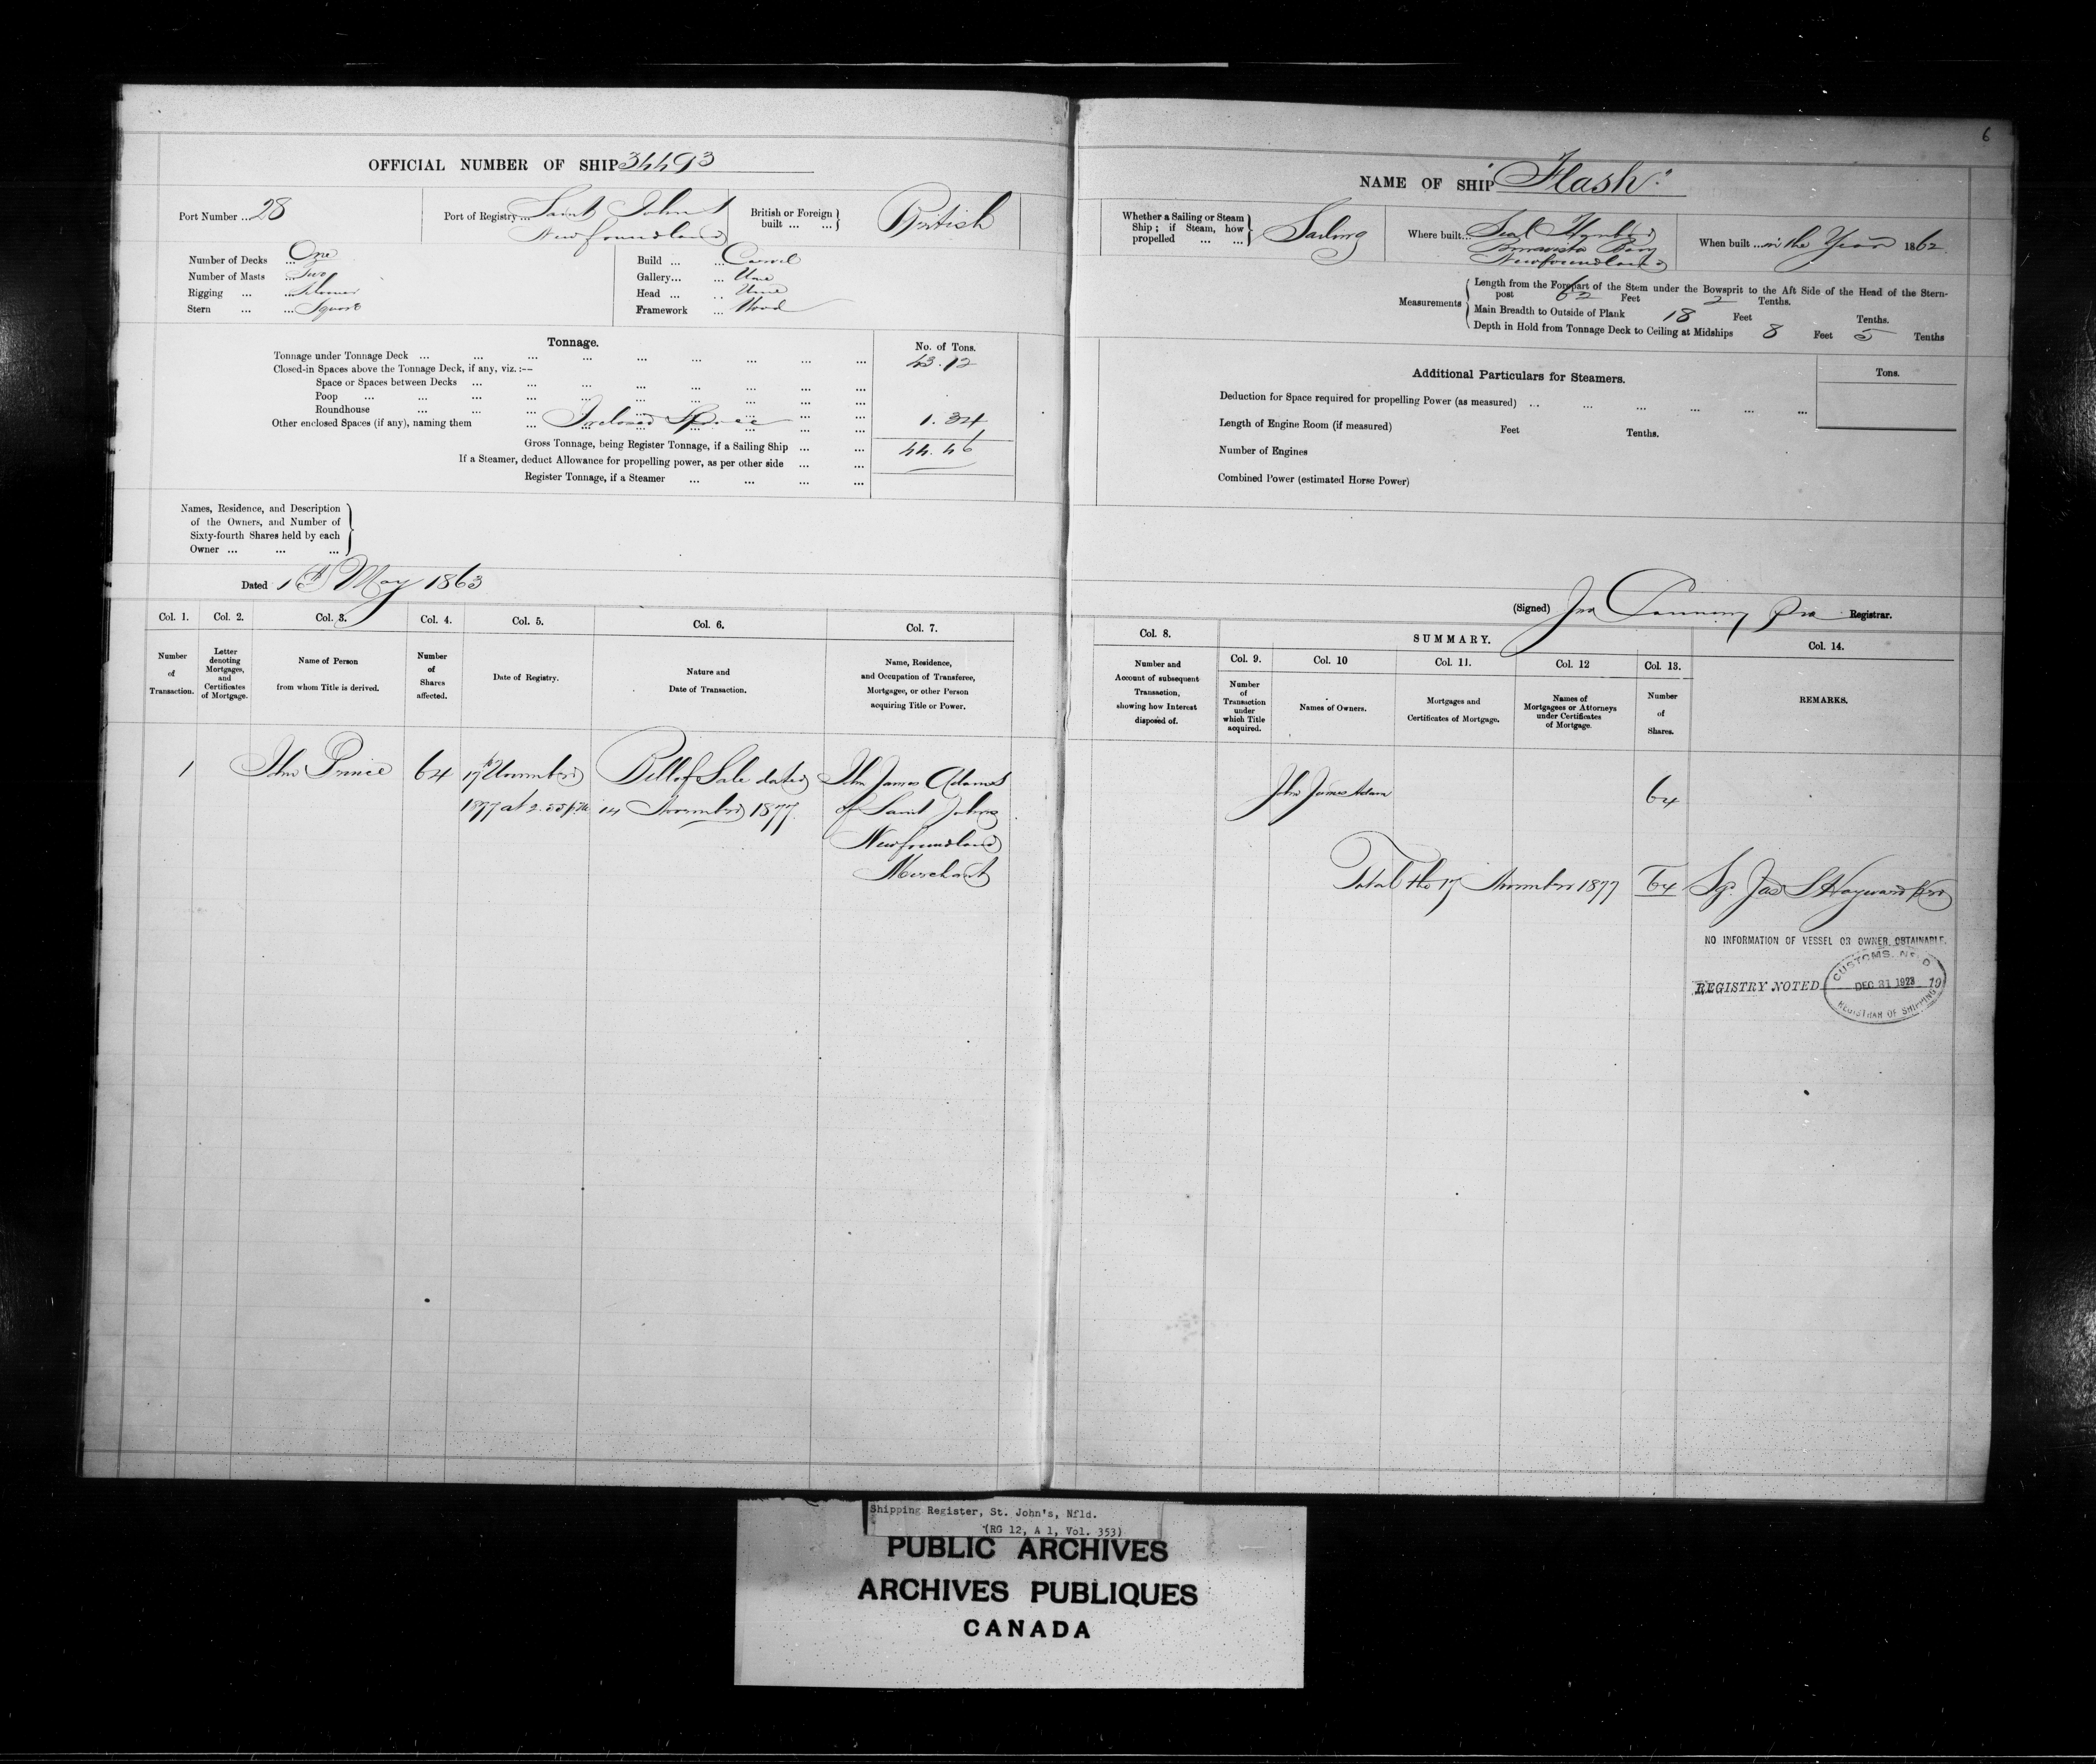 6
OFFICIAL NUMBER OF SHIP 34493
Port Number ... 28
Port of Registry ... Saint John's
Newfoundland
British or Foreign
built ... ...
British
Number of Decks ... One
Number of Masts ... Two
Rigging ... ... Schooner
Stern ... ... Square
Build ... ... Carvel
Gallery... ... None
Head ... ... None
Framework ... Wood
Tonnage.
No. of Tons.
Tonnage under Tonnage Deck ... ... ... ... ... ... ... ... ... 43.12
Closed-in Spaces above the Tonnage Deck, if any, viz. :—
Space or Spaces between Decks ... ... ... ... ... ... ... ...
Poop ... ... ... ... ... ... ... ... ...
Roundhouse ... ... ... ... ... ... ... ...
Other enclosed Spaces (if any), naming them ... Inclosed Space ... ... 1.34
Gross Tonnage, being Register Tonnage, if a Sailing Ship ... ... 44.46
If a Steamer, deduct Allowance for propelling power, as per other side ... ...
Register Tonnage, if a Steamer ... ... ... ...
Names, Residence, and Description
of the Owners, and Number of
Sixty-fourth Shares held by each
Owner ... ... ...
Dated May 1863
Col. 1.
Col. 2.
Col. 3.
Col. 4.
Col. 5.
Col. 6.
Col. 7.
Number
of
Transaction.
Letter
denoting
Mortgages,
and
Certificates
of Mortgage.
Name of Person
from whom Title is derived.
Number
of
Shares
affected.
Date of Registry.
Nature and
Date of Transaction.
Name, Residence,
and Occupation of Transferee,
Mortgagee, or other Person
acquiring Title or Power.
1 John Prince 64 17th November Bill of Sale dated John James Adams
1877 at 2.55 p.m. 14 November 1877. of Saint John's
Newfoundland
Merchant
NAME OF SHIP "Flash".
Whether a Sailing or Steam
Ship; if Steam, how
propelled ... ...
Sailing
Where built... Seal
Bonavista Bay
Newfoundland
When built ... in the Year 1862
Measurements
Length from the Forepart of the Stem under the Bowsprit to the Aft Side of the Head of the Stern-
post 62 Feet 2 Tenths.
Main Breadth to Outside of Plank 18 Feet Tenths.
Depth in Hold from Tonnage Deck to Ceiling at Midships 8 Feet 5 Tenths
Additional Particulars for Steamers.
Tons.
Deduction for Space required for propelling Power (as measured) ... ... ... ... ... ...
Length of Engine Room (if measured) Feet Tenths.
Number of Engines
Combined Power (estimated Horse Power)
(Signed) Jno Canning Pro Registrar.
Col. 8.
SUMMARY.
Col. 14.
Col. 9.
Col. 10
Col. 11.
Col. 12
Col. 13.
Number and
Account of subsequent
Transaction,
showing how Interest
disposed of.
Number
of
Transaction
under
which Title
acquired.
Names of Owners.
Mortgages and
Certificates of Mortgage.
Names of
Mortgagees or Attorneys
under Certificates
of Mortgage.
Number
of
Shares.
REMARKS.
John James Adam 64
Total the 17 November 1877 64 Sg. Jas S Hayward pro
NO INFORMATION OF VESSEL OR OWNER OBTAINABLE.
REGISTRY NOTED 19
CUSTOMS. NFLD
DEC 31 1923
REGISTRAR OF SHIPPING
Shipping Register, St. John's, Nfld.
(RG 12, A 1, Vol. 353)
PUBLIC ARCHIVES
ARCHIVES PUBLIQUES
CANADA